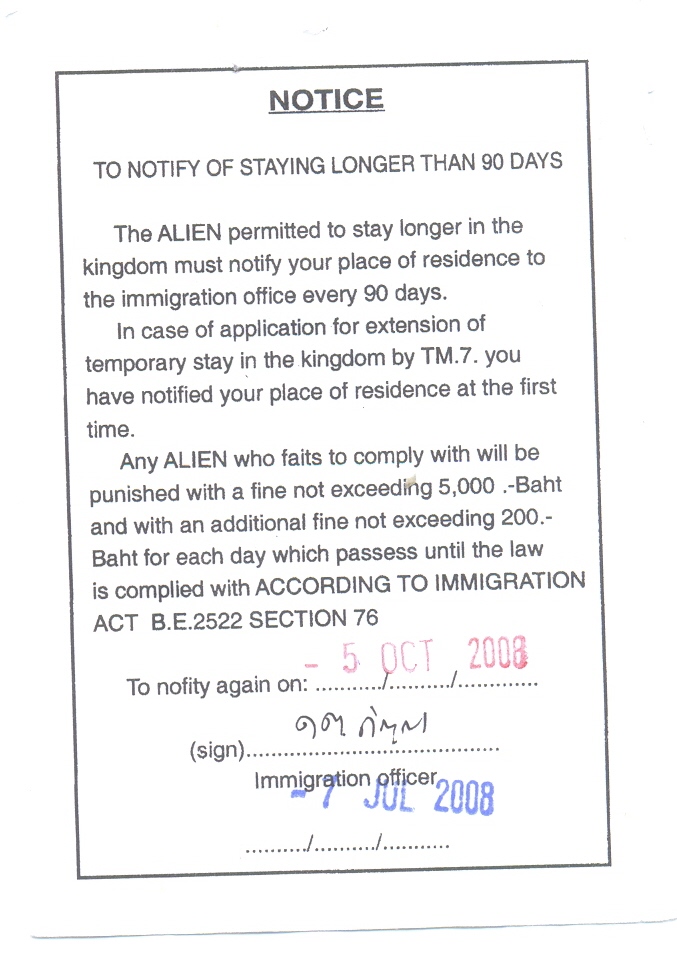 NOTICE
TO NOTIFY OF STAYING LONGER THAN 90 DAYS
The ALIEN permitted to stay longer in the
kingdom must notify your place of residence to
the immigration office every 90 days.
In case of application for extension of
temporary stay in the kingdom by TM.7. you
have notified your place of residence at the first
time.
Any ALIEN who faits to comply with will be
punished with a fine not exceeding 5,000 .-Baht
and with an additional fine not exceeding 200.-
Baht for each day which passess until the law
is complied with ACCORDING TO IMMIGRATION
ACT B.E.2522 SECTION 76
- 5 OCT 2008
To nofity again on: ........../........../.............
(sign)..........................................
Immigration officer
- 7 JUL 2008
........../........../...........